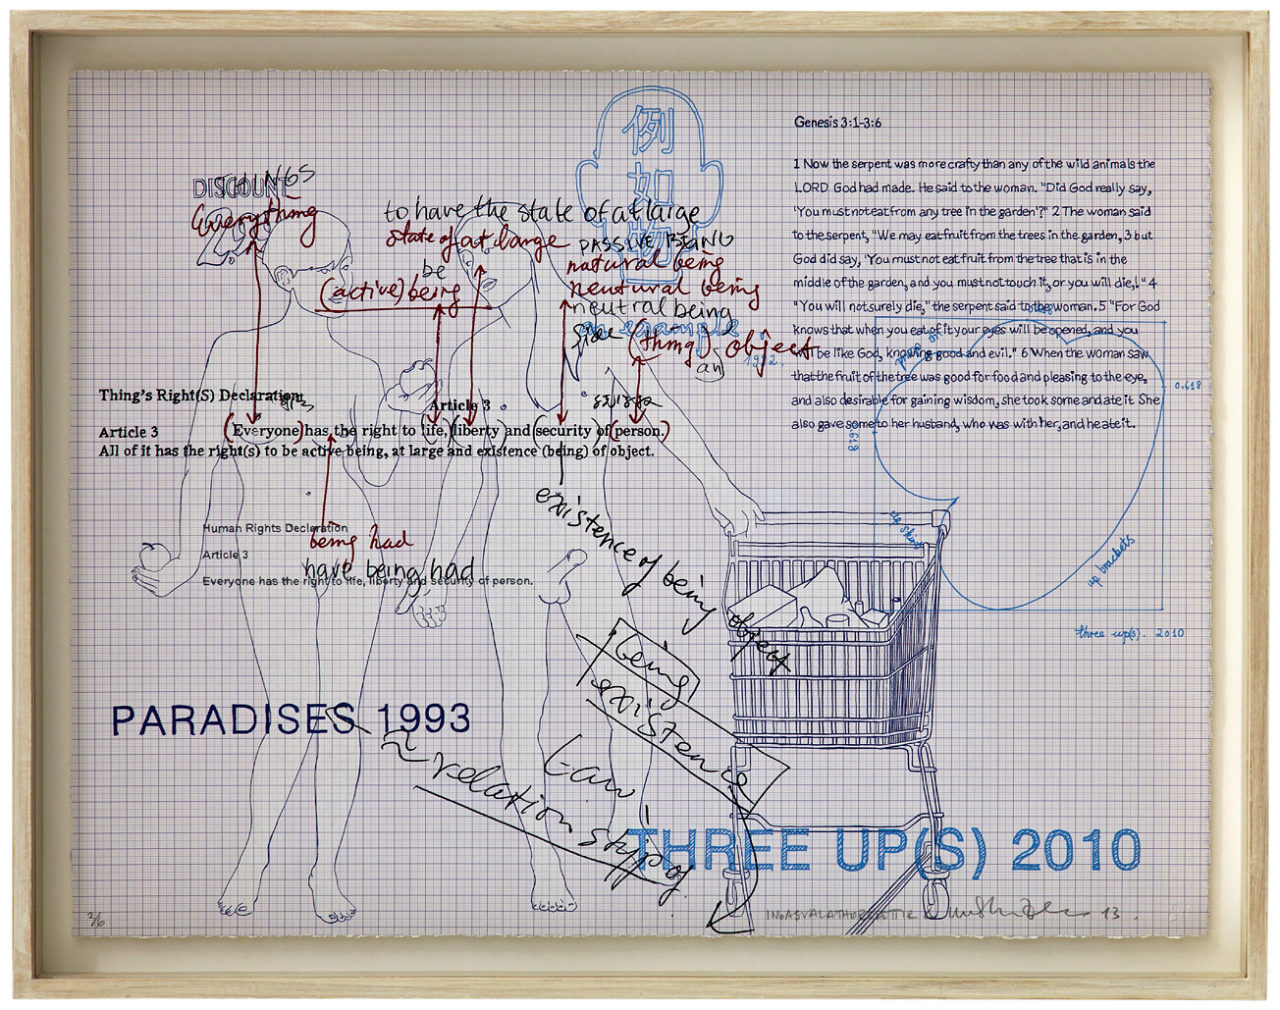 DISCOUNT
THINGS
Everything
to have the state of at large
state of at large
be
(active) being
PASSIVE BEING
natural being
neutural being
neutral being
an example
(thing) object
an
1992.
例
如
物
Thing's Right(S) Declaration
Article 3
Article 3
(Everyone) has the right to life, (liberty and (security of (person.)
All of it has the right(s) to be active being, at large and existence (being) of object.
Human Rights Declaration
being had
Article 3
have being had
Everyone has the right to life, liberty and security of person.
existence of being object
being
existence
relation
Law
PARADISES 1993
THREE UP(S) 2010
Genesis 3:1-3:6
1 Now the serpent was more crafty than any of the wild animals the
LORD God had made. He said to the woman. "Did God really say,
'You must not eat from any tree in the garden'?" 2 The woman said
to the serpent, "We may eat fruit from the trees in the garden, 3 but
God did say, 'You must not eat fruit from the tree that is in the
middle of the garden, and you must not touch it, or you will die,!" 4
"You will not surely die," the serpent said to the woman. 5 "For God
knows that when you eat of it your eyes will be opened, and you
will be like God, knowing good and evil." 6 When the woman saw
that the fruit of the tree was good for food and pleasing to the eye,
and also desirable for gaining wisdom, she took some and ate it. She
also gave some to her husband, who was with her, and he ate it.
0.618
up skirt
up brackets
three up(s). 2010
2/6
13.